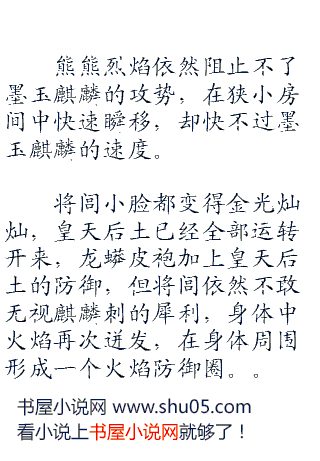 熊熊烈焰依然阻止不了
墨玉麒麟的攻势，在狭小房
间中快速瞬移，却快不过墨
玉麒麟的速度。
将闾小脸都变得金光灿
灿，皇天后土已经全部运转
开来，龙蟒皮袍加上皇天后
土的防御，但将闾依然不敢
无视麒麟刺的犀利，身体中
火焰再次迸发，在身体周围
形成一个火焰防御圈。。
书屋小说网 www.shu05.com
看小说上书屋小说网就够了！